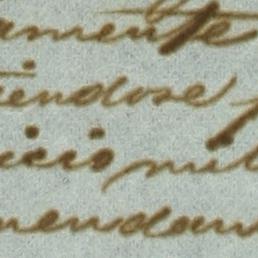 amente
iendose
icio mil
mendam